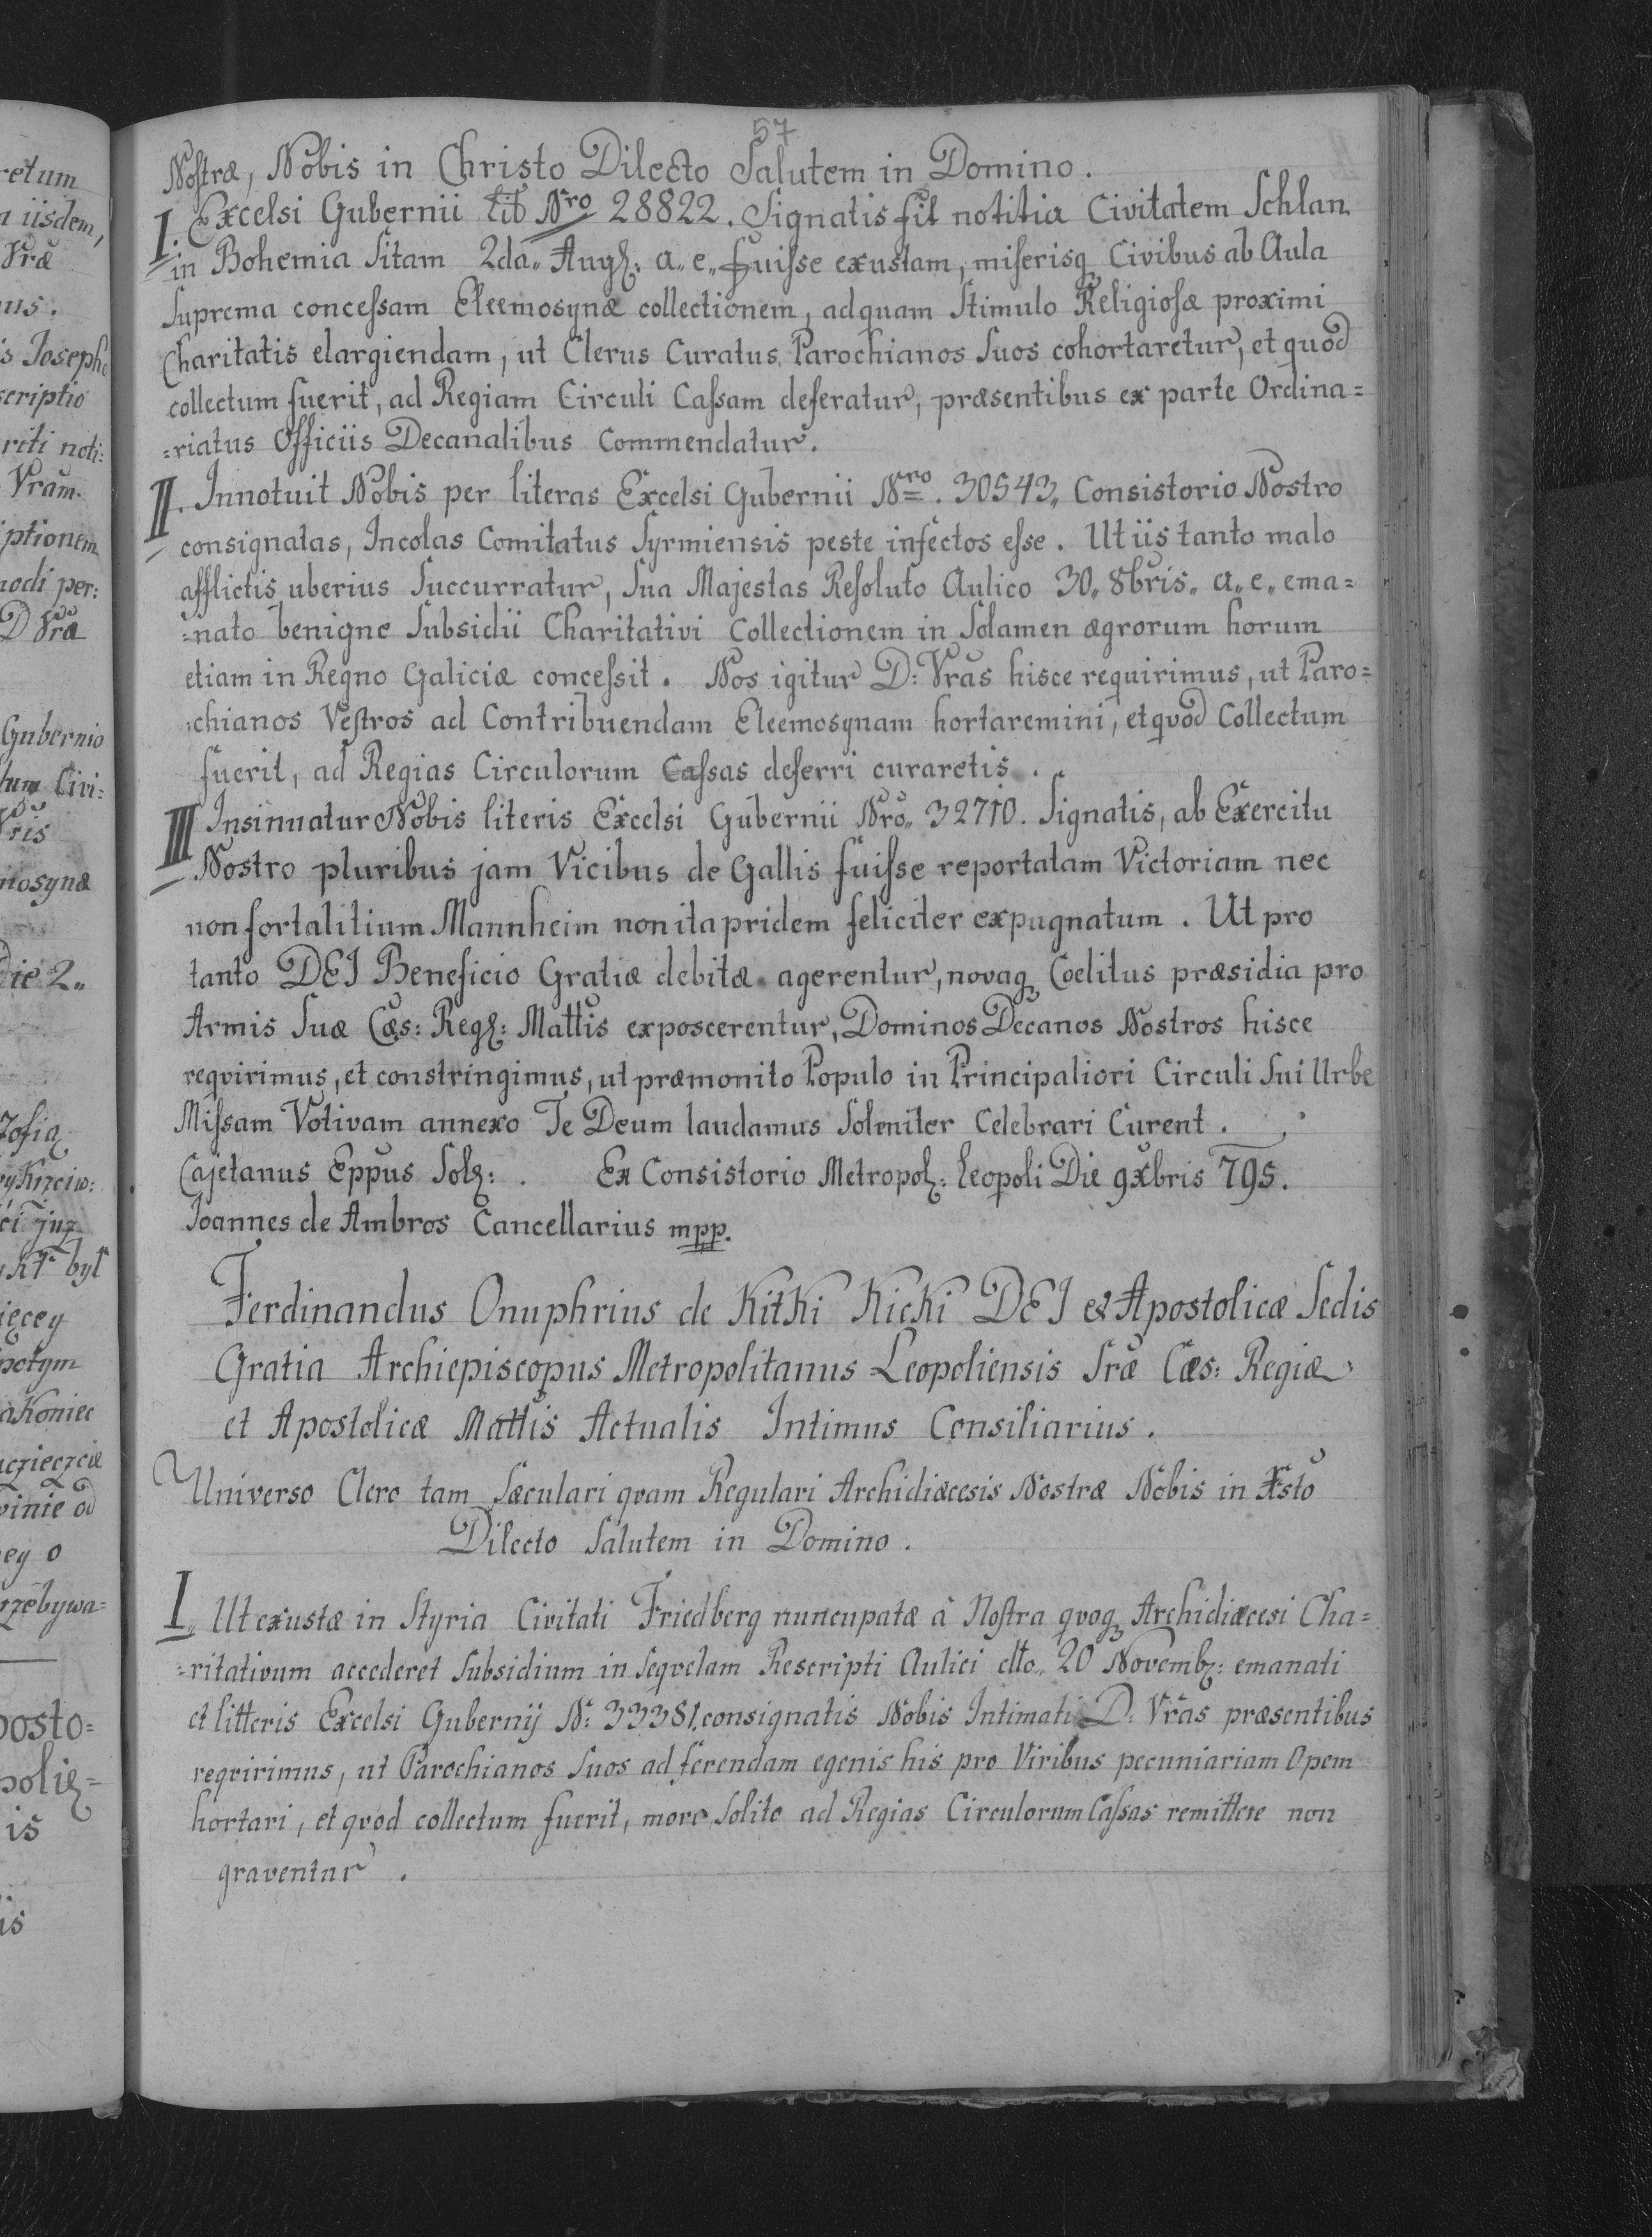 57
Nostræ, Nobis in Christo Dilecto Salutem in Domino.
I. Excelsi Gubernii lit Nro 28822. Signatis fit notitia Civitatem Schlan
in Bohemia Sitam 2da„ Aug: a„ e„ fuisse exustam, miserisq Civibus ab Aula
Suprema concessam Eleemosynæ collectionem, ad quam Stimulo Religiosæ proximi
Charitatis elargiendam, ut Clerus Curatus Parochianos Suos cohortaretur, et quod
collectum fuerit, ad Regiam Circuli Cassam deferatur, præsentibus ex parte Ordina=
=riatus Officiis Decanalibus Commendatur.
II. Innotuit Nobis per literas Excelsi Gubernii Nro. 30543„ Consistorio Nostro
consignatas, Incolas Comitatus Syrmiensis peste infectos esse. Ut iis tanto malo
afflictis uberius Succurratur, Sua Majestas Resoluto Aulico 30„ 8bris„ a„ e„ ema=
=nato benigne Subsidii Charitativi Collectionem in Solamen ægrorum horum
etiam in Regno Galiciæ concessit. Nos igitur D: Vras hisce requirimus, ut Paro=
=chianos Vestros ad Contribuendam Eleemosynam hortaremini, et qvod Collectum
fuerit, ad Regias Circulorum Cassas deferri curaretis.
III Insinuatur Nobis literis Excelsi Gubernii Nro„ 32710. Signatis, ab Exercitu
Nostro pluribus jam Vicibus de Gallis fuisse reportatam Victoriam nec
non fortalitium Mannheim non ita pridem feliciter expugnatum. Ut pro
tanto DEI Beneficio Gratiæ debitæ agerentur, novaq Coelitus præsidia pro
Armis Suæ Cæs: Reg: Mattis exposcerentur, Dominos Decanos Nostros hisce
reqvirimus, et constringimus, ut præmonito Populo in Principaliori Circuli Sui Urbe
Missam Votivam annexo Te Deum laudamus Solenniter Celebrari Curent.
Cajetanus Eppus Sol: . Ex Consistorio Metropol: Leopoli Die 9xbris 795.
Joannes de Ambros Cancellarius mpp.
Ferdinandus Onuphrius de Kitki Kicki DEI et Apostolicæ Sedis
Gratia Archiepiscopus Metropolitanus Leopoliensis Sræ Cæs: Regiæ
et Apostolicæ Mattis Actualis Intimus Consiliarius.
Universo Clero tam Sæculari qvam Regulari Archidiæcesis Nostræ Nobis in Xsto
Dilecto Salutem in Domino.
I„ Ut exustæ in Styria Civitati Friedberg nuncupatæ à Nostra qvoq Archidiæcesi Cha=
=ritativum accederet Subsidium in Seqvelam Rescripti Aulici dto„ 20 Novemb: emanati
et litteris Excelsi Gubernij N: 33381. consignatis Nobis Intimati D: Vras præsentibus
reqvirimus, ut Parochianos Suos ad ferendam egenis his pro Viribus pecuniariam Opem
hortari, et qvod collectum fuerit, more Solito ad Regias Circulorum Cassas remittere non
graventur.